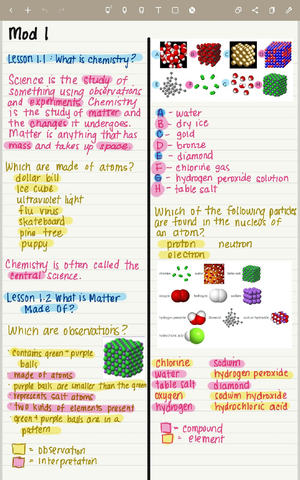 Mod 1
Lesson 1.1: What is chemistry?
Science is the study of
something using observations
and experiments. Chemistry
is the study of matter and
the changes it undergoes.
Matter is anything that has
mass and takes up space.
Which are made of atoms?
dollar bill
ice cube
ultraviolet light
flu virus
skateboard
pine tree
puppy
Chemistry is often called the
central science.
Lesson 1.2 What is Matter
Made Of?
Which are observations?
contains green + purple
balls
made of atoms
purple balls are smaller than the green
represents salt atoms
two kinds of elements present
green + purple balls are in a
pattern
= observation
= interpretation
A - water
B - dry ice
C - gold
D - bronze
E - diamond
F - chlorine gas
G - hydrogen peroxide solution
H - table salt
Which of the following particles
are found in the nucleus of
an atom?
proton neutron
electron
chlorine
water
table salt
oxygen
hydrogen
sodium
hydrogen peroxide
diamond
sodium hydroxide
hydrochloric acid
chlorine sodium
water hydrogen peroxide
table salt diamond
oxygen sodium hydroxide
hydrogen hydrochloric acid
= compound
= element